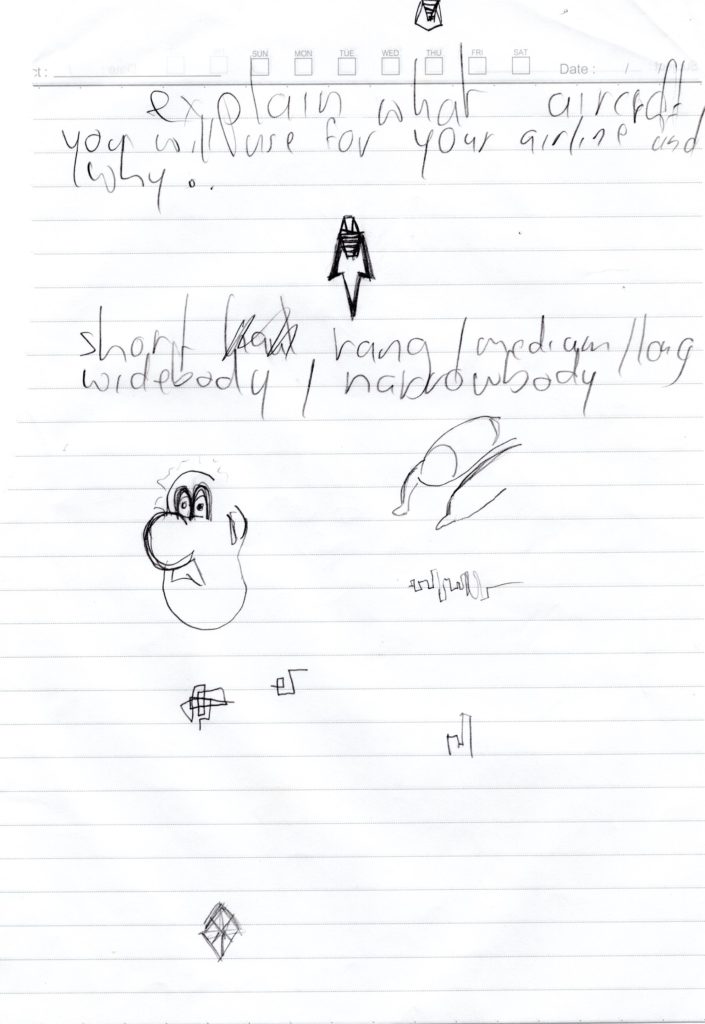 SUN MON TUE WED THU FRI SAT
ct : Date : / /
explain what aircraft
you will use for your airline and
why..
short rang / medium / long
widebody / narrowbody